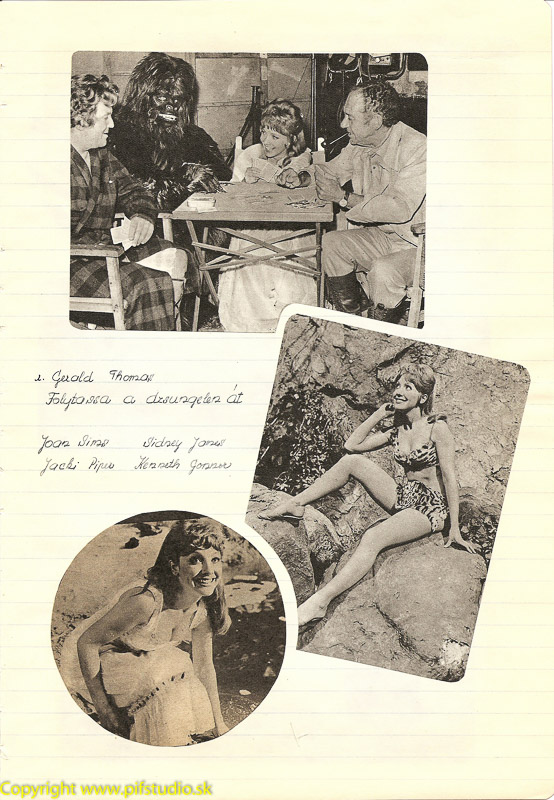 r. Gerald Thomas
Folytassa a dzsungelen át
Joan Sims Sidney James
Jacki Piper Kenneth Connor
Copyright www.pifstudio.sk